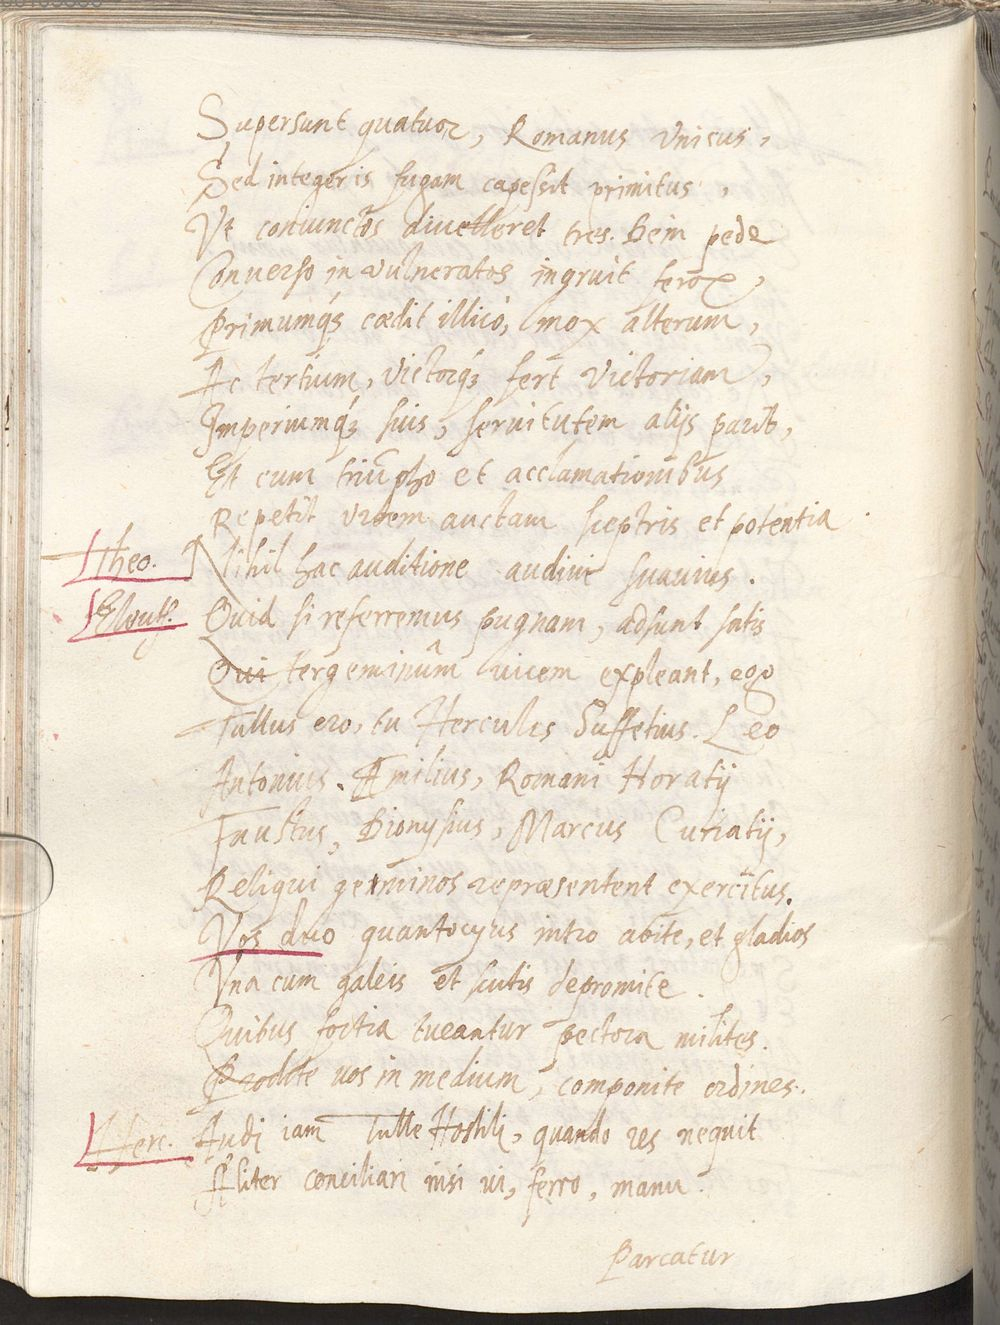 Supersunt quatuor, Romanus unicus,
Sed integer is fugam capessit primitus,
Ut coniunctos diuelleret tres. bem pede
Conuerso in vulneratos ingruit ferox,
Primumq́ꝫ cædit illico, mox alterum,
Ac tertium, victorq́ꝫ fert victoriam,
Imperiumq́ꝫ suis, seruitutem alijs parit,
Et cum triūpho et acclamationibus
Repetit urbem auctam sceptris et potentia.
Theo. Nihil hac auditione audiui suauius.
Eleuth. Quid si referremus pugnam, adsunt satis
Qui tergeminûm uicem expleant, ego
Tullus ero, tu Herculis Suffetius. Leo
Antonius. Æmilius, Romani Horatij
Faustus, Dionysius, Marcus Curiatij,
Reliqui geminos repræsentent exercitus.
Vos duo quantocyus intro abite, et gladios
Vna cum galeis et scutis depromite.
Quibus fortia tueantur pectora milites.
Prodite uos in medium, componite ordines.
Herc. Audi iam Tulle Hostili, quando res nequit
Aliter conciliari nisi ui, ferro, manu.
Parcatur